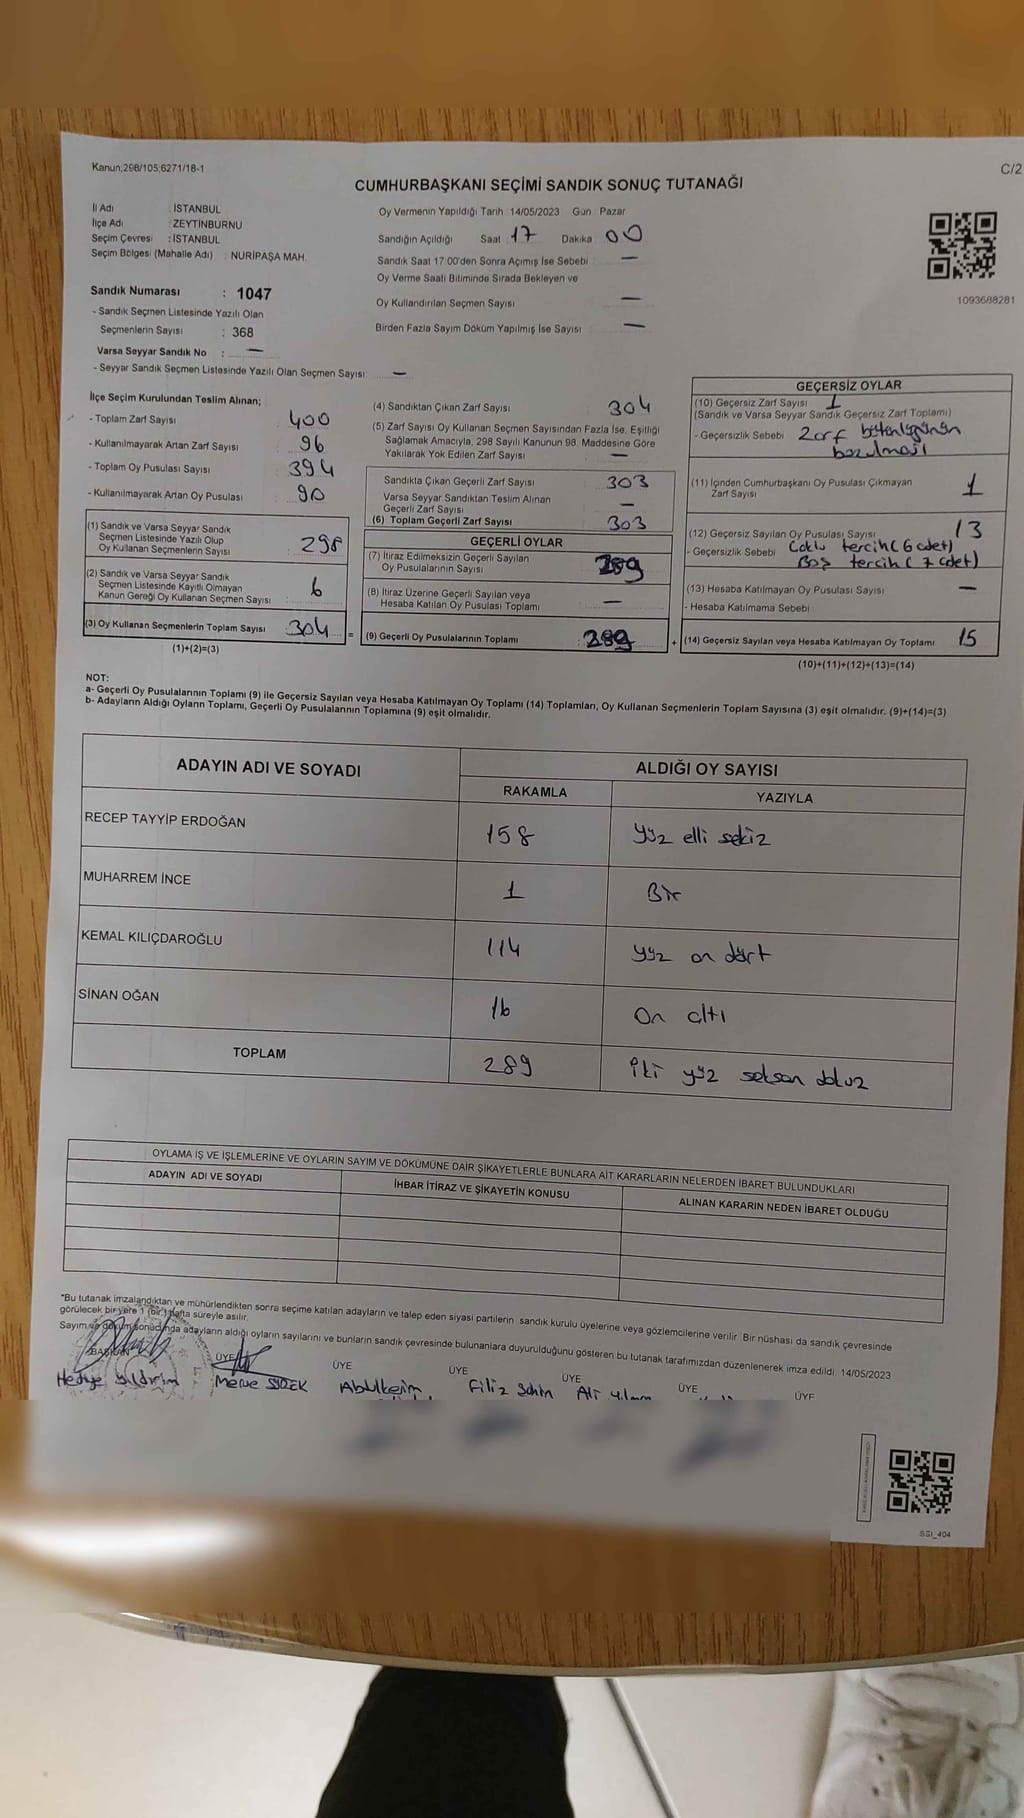 Kanun;298/105,6271/18-1
C/2
CUMHURBAŞKANI SEÇİMİ SANDIK SONUÇ TUTANAĞI
İl Adı : İSTANBUL
İlçe Adı : ZEYTİNBURNU
Seçim Çevresi : İSTANBUL
Seçim Bölgesi (Mahalle Adı) : NURİPAŞA MAH.
Sandık Numarası : 1047
- Sandık Seçmen Listesinde Yazılı Olan
Seçmenlerin Sayısı : 368
Varsa Seyyar Sandık No : —
- Seyyar Sandık Seçmen Listesinde Yazılı Olan Seçmen Sayısı: —
Oy Vermenin Yapıldığı Tarih :14/05/2023 Gün : Pazar
Sandığın Açıldığı Saat : 17 Dakika : 00
Sandık Saat 17:00'den Sonra Açımış İse Sebebi : —
Oy Verme Saati Bitiminde Sırada Bekleyen ve
Oy Kullandırılan Seçmen Sayısı : —
Birden Fazla Sayım Döküm Yapılmış İse Sayısı : —
1093688281
İlçe Seçim Kurulundan Teslim Alınan;
- Toplam Zarf Sayısı : 400
- Kullanılmayarak Artan Zarf Sayısı : 96
- Toplam Oy Pusulası Sayısı : 394
- Kullanılmayarak Artan Oy Pusulası : 90
(1) Sandık ve Varsa Seyyar Sandık
Seçmen Listesinde Yazılı Olup
Oy Kullanan Seçmenlerin Sayısı : 298
(2) Sandık ve Varsa Seyyar Sandık
Seçmen Listesinde Kayıtlı Olmayan
Kanun Gereği Oy Kullanan Seçmen Sayısı : 6
(3) Oy Kullanan Seçmenlerin Toplam Sayısı : 304 =
(1)+(2)=(3)
(4) Sandıktan Çıkan Zarf Sayısı : 304
(5) Zarf Sayısı Oy Kullanan Seçmen Sayısından Fazla İse, Eşitliği
Sağlamak Amacıyla, 298 Sayılı Kanunun 98. Maddesine Göre
Yakılarak Yok Edilen Zarf Sayısı : —
Sandıkta Çıkan Geçerli Zarf Sayısı : 303
Varsa Seyyar Sandıktan Teslim Alınan
Geçerli Zarf Sayısı : —
(6) Toplam Geçerli Zarf Sayısı : 303
GEÇERLİ OYLAR
(7) İtiraz Edilmeksizin Geçerli Sayılan
Oy Pusulalarının Sayısı : 289
(8) İtiraz Üzerine Geçerli Sayılan veya
Hesaba Katılan Oy Pusulası Toplamı : —
(9) Geçerli Oy Pusulalarının Toplamı : 289 +
GEÇERSİZ OYLAR
(10) Geçersiz Zarf Sayısı : 1
(Sandık ve Varsa Seyyar Sandık Geçersiz Zarf Toplamı)
- Geçersizlik Sebebi : Zarf bütünlüğünün
bozulması
(11) İçinden Cumhurbaşkanı Oy Pusulası Çıkmayan
Zarf Sayısı : 1
(12) Geçersiz Sayılan Oy Pusulası Sayısı : 13
- Geçersizlik Sebebi : Çoklu tercih (6 adet)
Boş tercih (7 adet)
(13) Hesaba Katılmayan Oy Pusulası Sayısı : —
- Hesaba Katılmama Sebebi :
(14) Geçersiz Sayılan veya Hesaba Katılmayan Oy Toplamı : 15
(10)+(11)+(12)+(13)=(14)
NOT:
a- Geçerli Oy Pusulalarının Toplamı (9) ile Geçersiz Sayılan veya Hesaba Katılmayan Oy Toplamı (14) Toplamları, Oy Kullanan Seçmenlerin Toplam Sayısına (3) eşit olmalıdır. (9)+(14)=(3)
b- Adayların Aldığı Oyların Toplamı, Geçerli Oy Pusulalarının Toplamına (9) eşit olmalıdır.
ADAYIN ADI VE SOYADI
ALDIĞI OY SAYISI
RAKAMLA YAZIYLA
RECEP TAYYİP ERDOĞAN 158 Yüz elli sekiz
MUHARREM İNCE 1 Bir
KEMAL KILIÇDAROĞLU 114 Yüz on dört
SİNAN OĞAN 16 On altı
TOPLAM 289 İki yüz seksen dokuz
OYLAMA İŞ VE İŞLEMLERİNE VE OYLARIN SAYIM VE DÖKÜMÜNE DAİR ŞİKAYETLERLE BUNLARA AİT KARARLARIN NELERDEN İBARET BULUNDUKLARI
ADAYIN ADI VE SOYADI İHBAR İTİRAZ VE ŞİKAYETİN KONUSU ALINAN KARARIN NEDEN İBARET OLDUĞU
*Bu tutanak imzalandıktan ve mühürlendikten sonra seçime katılan adayların ve talep eden siyasi partilerin sandık kurulu üyelerine veya gözlemcilerine verilir. Bir nüshası da sandık çevresinde
görülecek bir yere 1 (bir) hafta süreyle asılır.
Sayım ve döküm sonucunda adayların aldığı oyların sayılarını ve bunların sandık çevresinde bulunanlara duyurulduğunu gösteren bu tutanak tarafımızdan düzenlenerek imza edildi. 14/05/2023
BAŞKAN ÜYE ÜYE ÜYE ÜYE ÜYE ÜYE
Hediye Yıldırım Merve Abdulkerim Filiz Şahin Ali
SSI_404